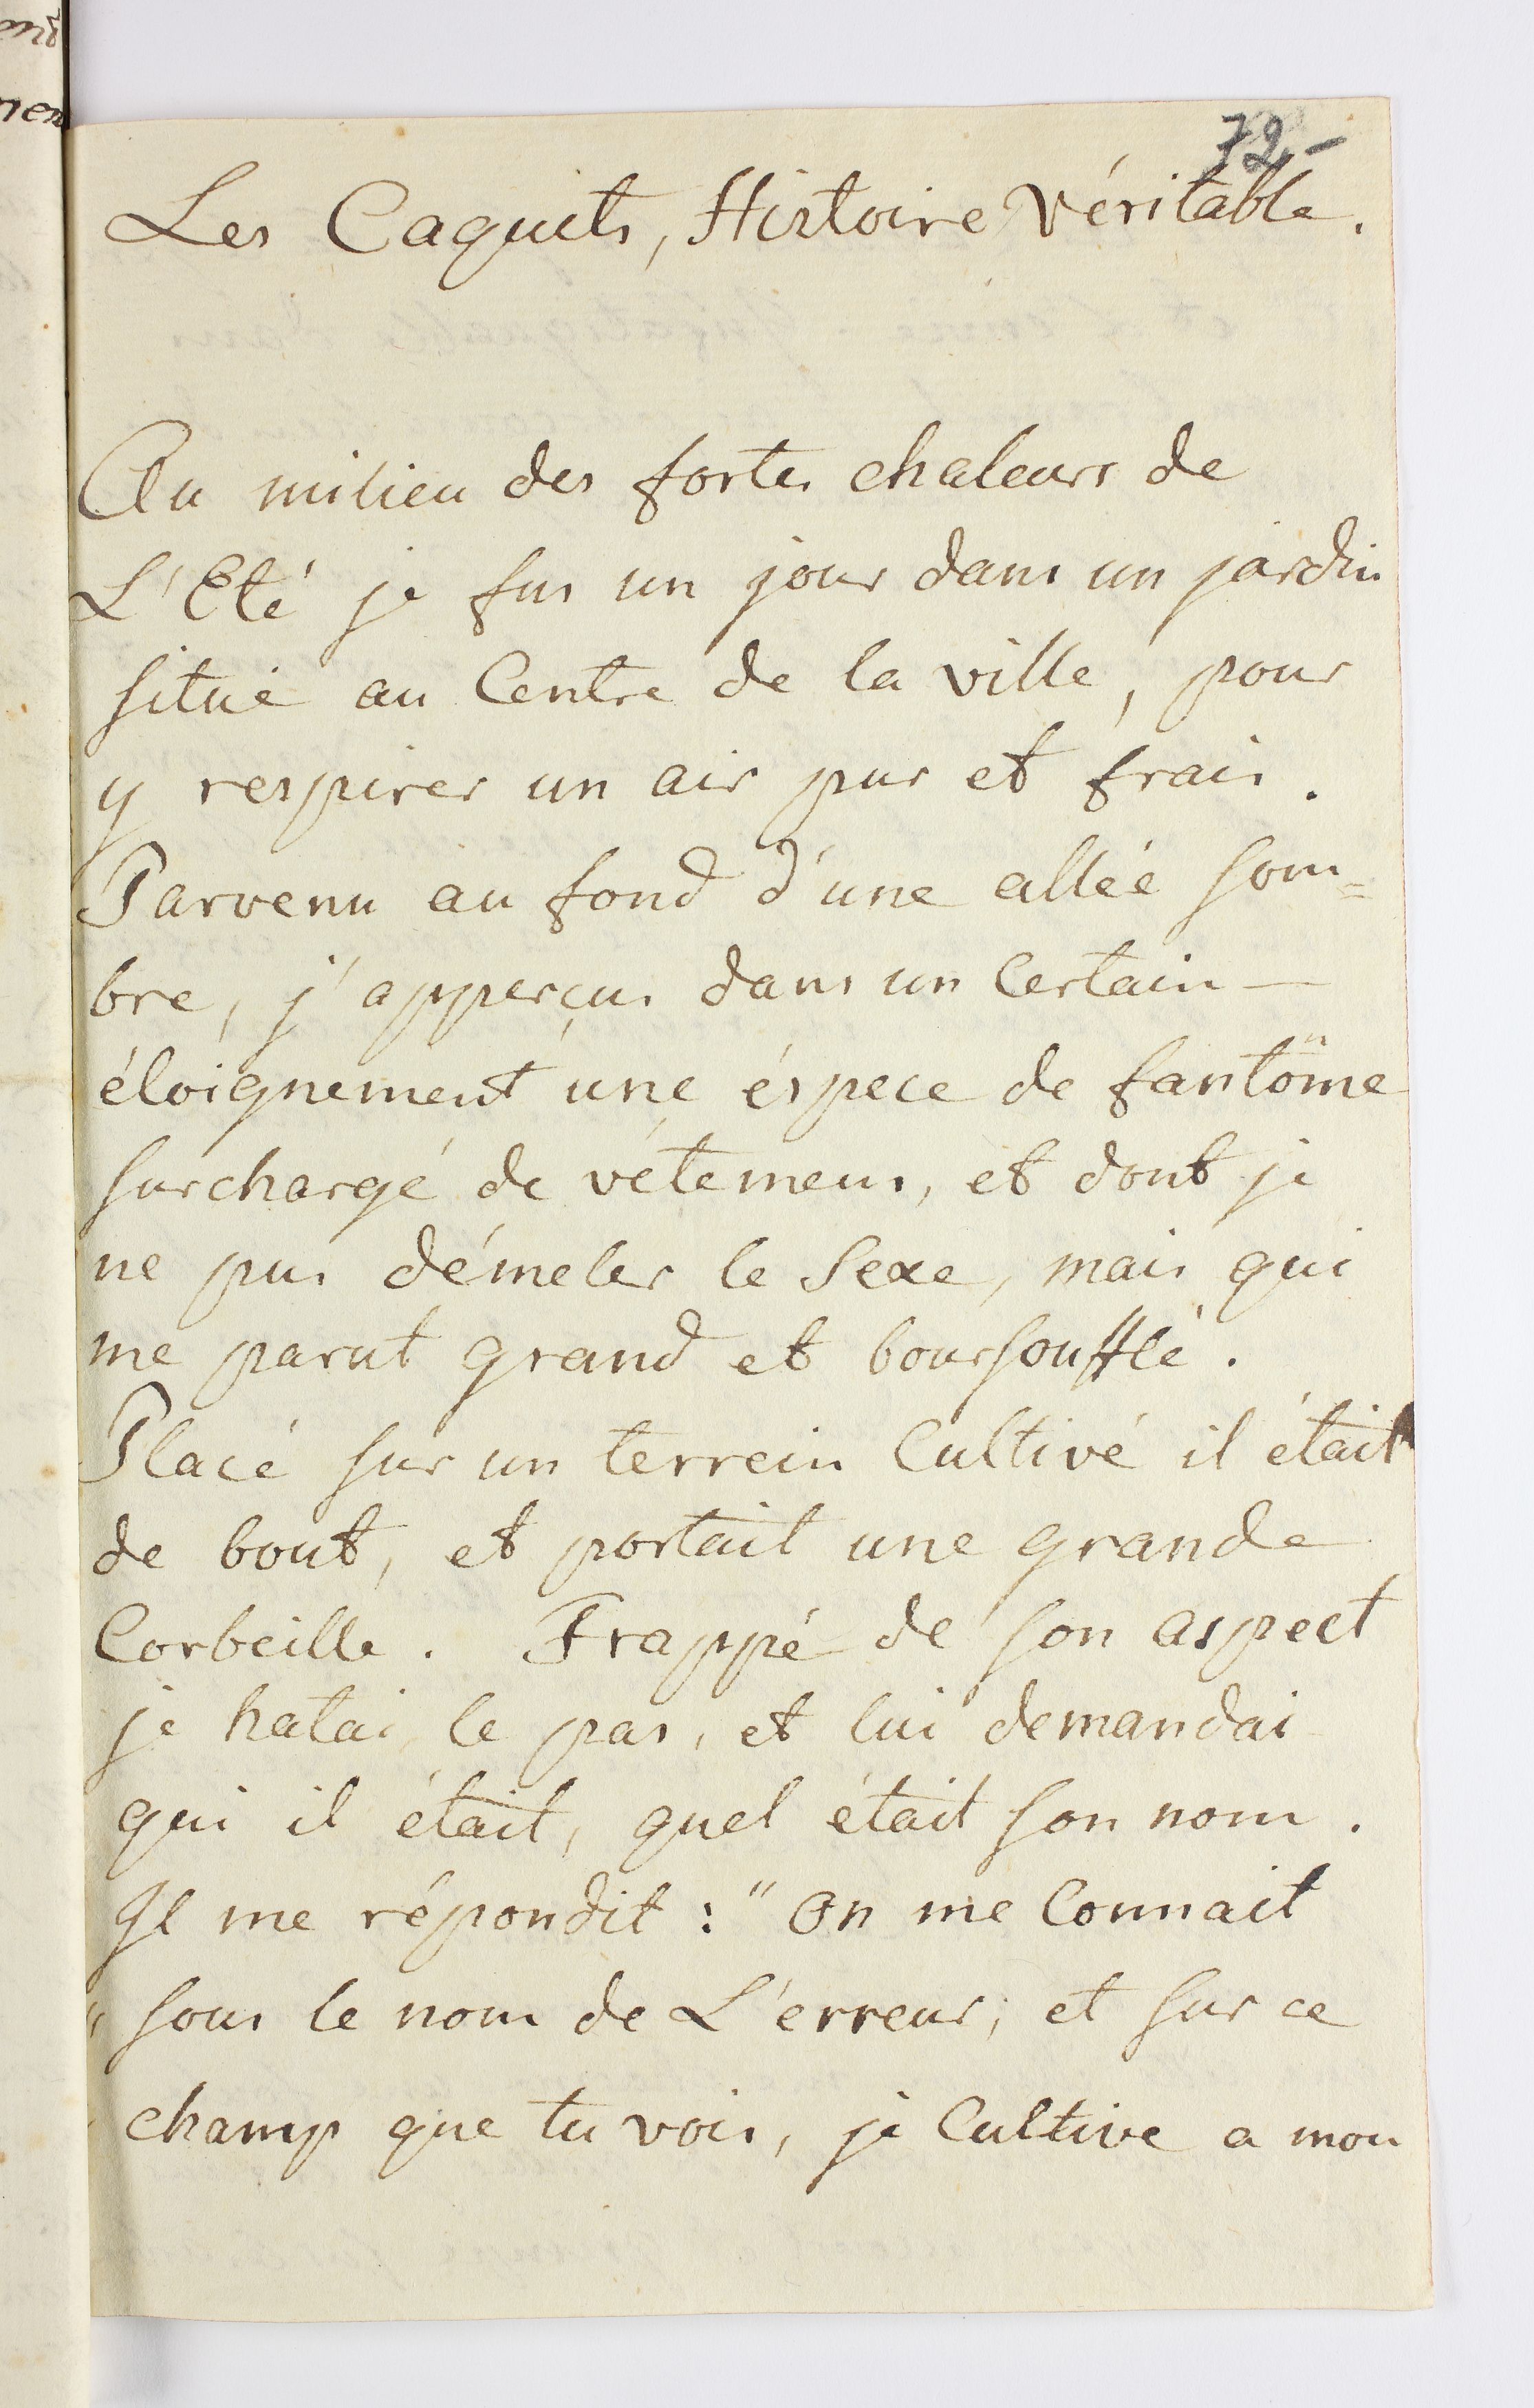 72.-
Les Caquets, Histoire véritable.
Au milieu des fortes chaleurs de
L'Eté je fus un jour dans un jardin
situé au Centre de la ville, pour
y respirer un air pur et frais.
Parvenu au fond d'une allée som=
bre, j'apperçus dans un Certain —
éloignement une éspece de fantôme
surchargé de vétemens, et dont je
ne pus démeler le Sexe, mais qui
me parut grand et boursoufflé.
Placé sur un terrein Cultivé il était
de bout, et portait une grande
Corbeille. Frappé de son aspect
je hatai le pas, et lui demandai
qui il était, quel était son nom.
Il me répondit : " On me Connait
" sous le nom de L'erreur, et sur ce
champ que tu vois, je Cultive a mon